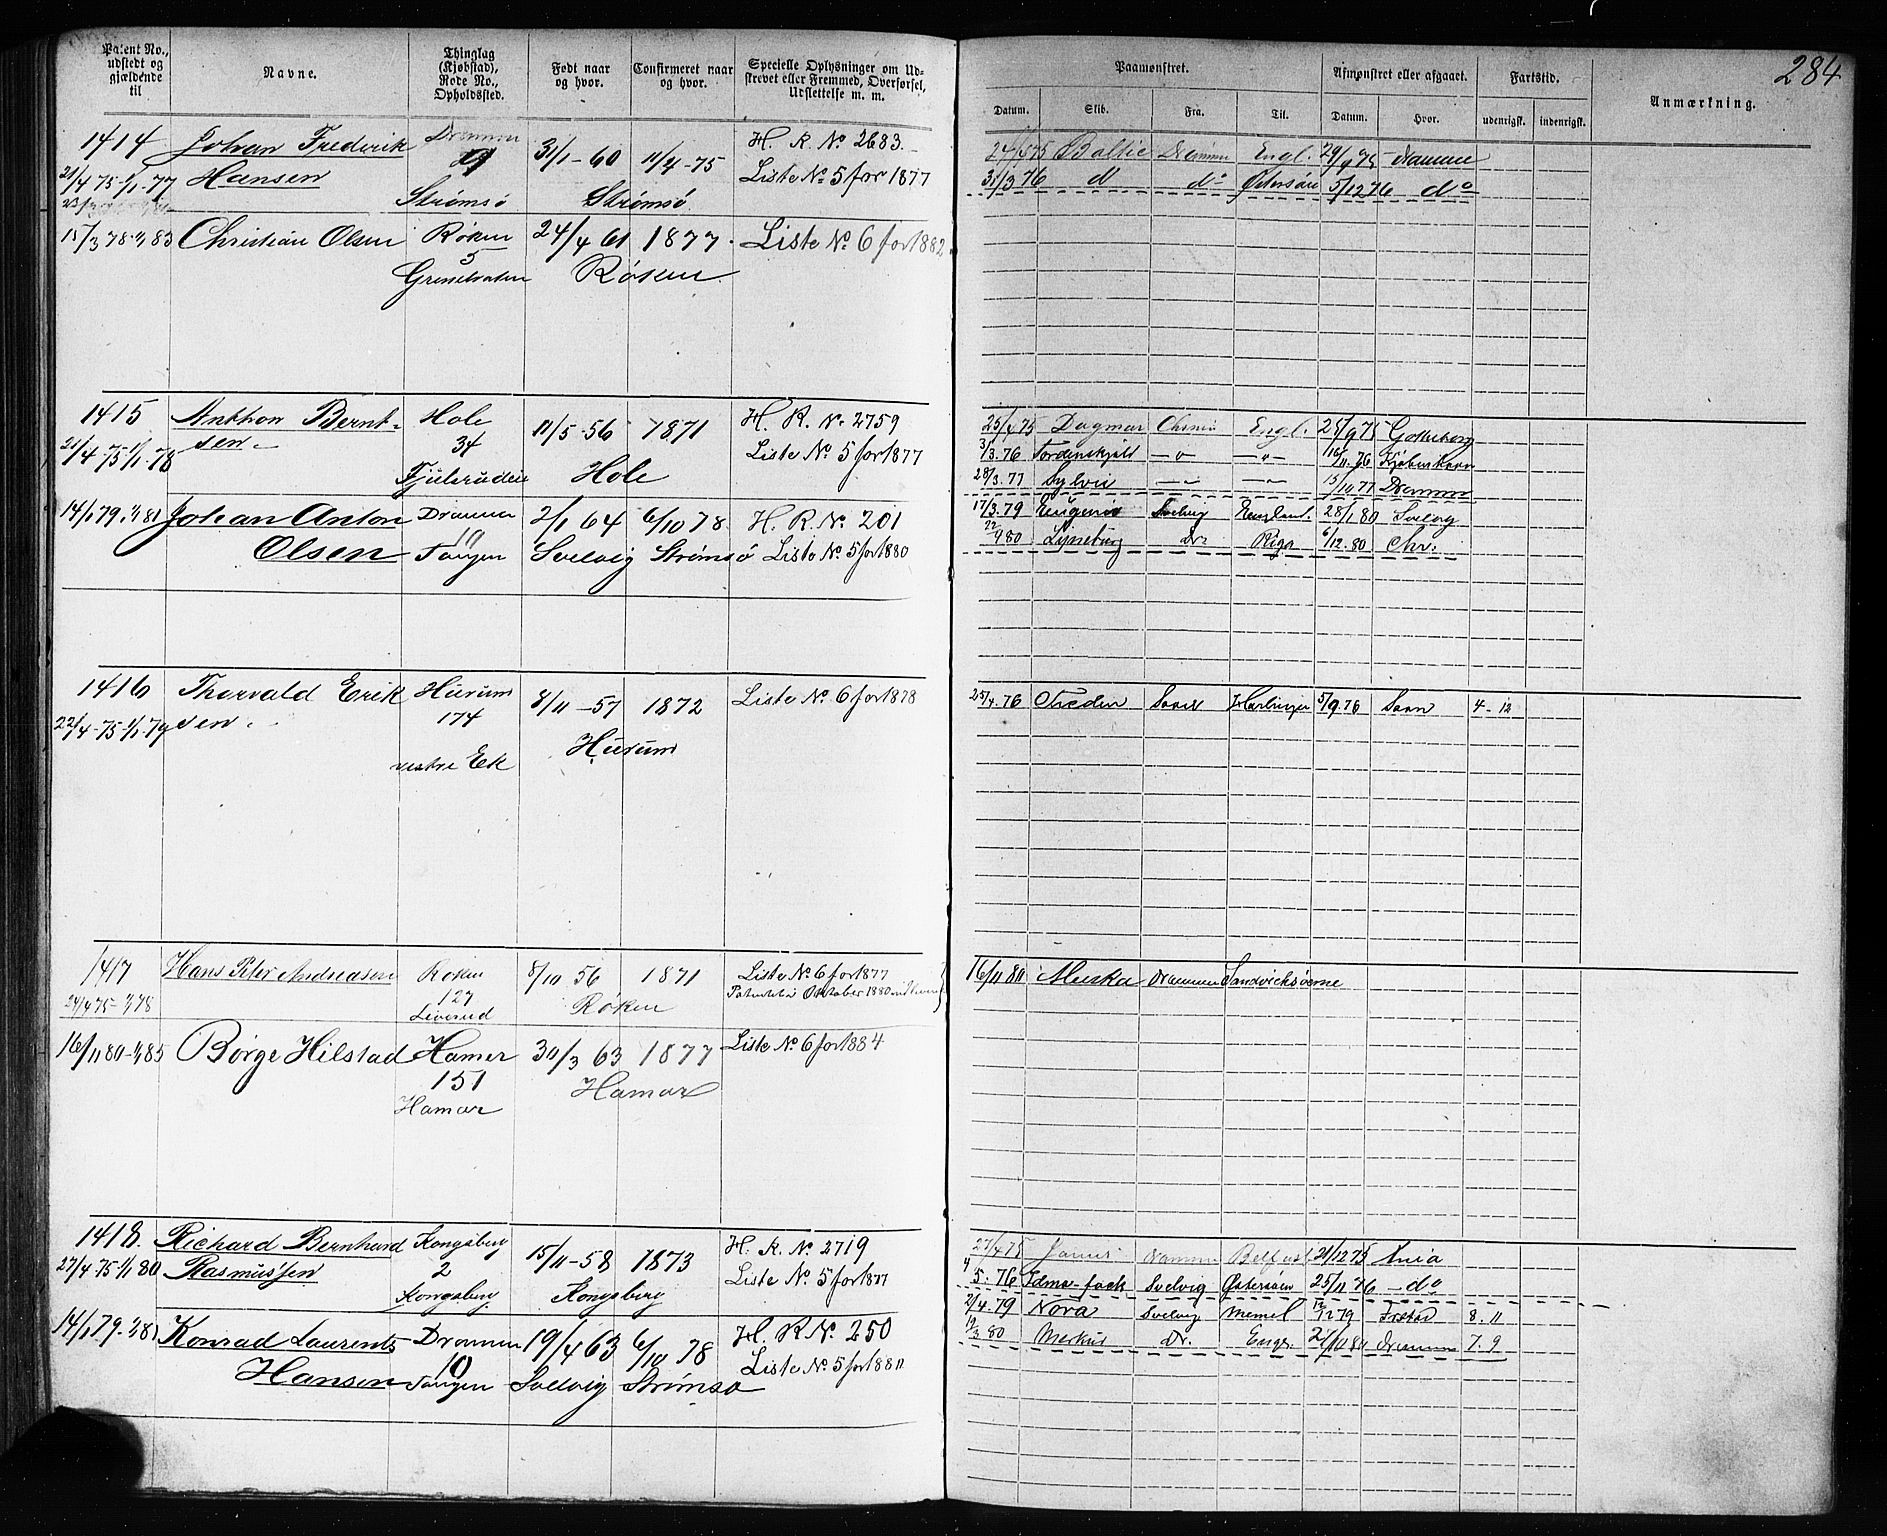 284
Patent No., udstedt og gjældende til
Navne.
Thinglag (Kjøbstad), Rode No., Opholdssted.
Født naar og hvor.
Confirmeret naar og hvor.
Specielle Oplysninger om Udskrevet eller Fremmed, Overførsel, Udslettelse m. m.
Paamønstret.
Afmønstret eller afgaaet.
Fartstid.
Anmærkning.
Datum. Skib. Fra. Til. Datum. Hvor. udenrigsk. indenrigsk.
1414 Johan Frederik Drammen 31/1-60 11/4-75 H. R. No 2683.
21/4 75-1/1-77 Hansen Liste No 5 for 1877
Strømsø Strømsø
31/3 76 do do Østersøen 5/12 76 do
15/3 78-1/1 83 Christian Olsen Røken 24/4 61 1877. Liste No. 6 for 1882
5
Røken.
1415 Anthon Bernt- Hole 11/5-56 1871 H. R. No 2759
sen. 34 Liste No 5 for 1877
21/4 75-1/1-78 Hole
25/4 75 Dagmar Engl. 28/9 75
31/3.76 Tordenskjold 16/11.76 Kjøbenhavn
28/3.77 Sylvia 15/10 77 Drammen
14/1 79-1/1 81 Johan Anton Drammen 2/1 64 6/10 78 H. R. No 201
10
Olsen Tangen Svelvig Strømsø Liste No 5 for 1880
17/3.79 Eugenie Svelvig England. 28/1 80 Svelvig
Dr. Riga 6/12.80 Chr.
1416 Thorvald Erik Hurum 8/11-57 1872 Liste No. 6 for 1878
22/4-75-1/1-79 sen. 174
Hurum
vestre Ek
25/4.76 Freden Harlingen 5/9.76 4-12
1417 Hans Peter Andreasen Røken 8/10 56 1871 Liste No 6 for 1877
24/4 75-1/1 78 127 Røken
16/11 80 Drammen
16/11 80-1/1 85 Børge Hilstad Hamar 30/3 63 1877 Liste No. 6 for 1884
151 Hamar
Hamar
1418. Richard Bernhard Kongsberg 15/11-58 1873 H. R. No. 2719
27/4-75-1/1 80 Rasmussen 2 Liste No. 5 for 1877
Kongsberg Kongsberg
27/4 75 Belfast 21/12 75
5.76 Svelvig Østersøen 25/11 76 do
14/1 79-1/1 81 Konrad Laurents Drammen 19/4 63 6/10 78 H. R. No. 250
10
Hansen Tangen Svelvig Strømsø Liste No 5 for 1880
2/4.79 Nora Svelvig Memel 8.11
Merkur Dr. Drammen 7.9